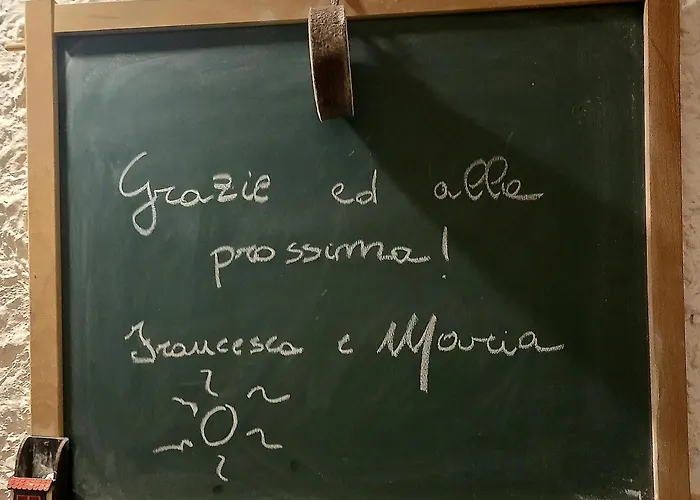 Grazie ed alla
prossima!
Francesca e Mauria